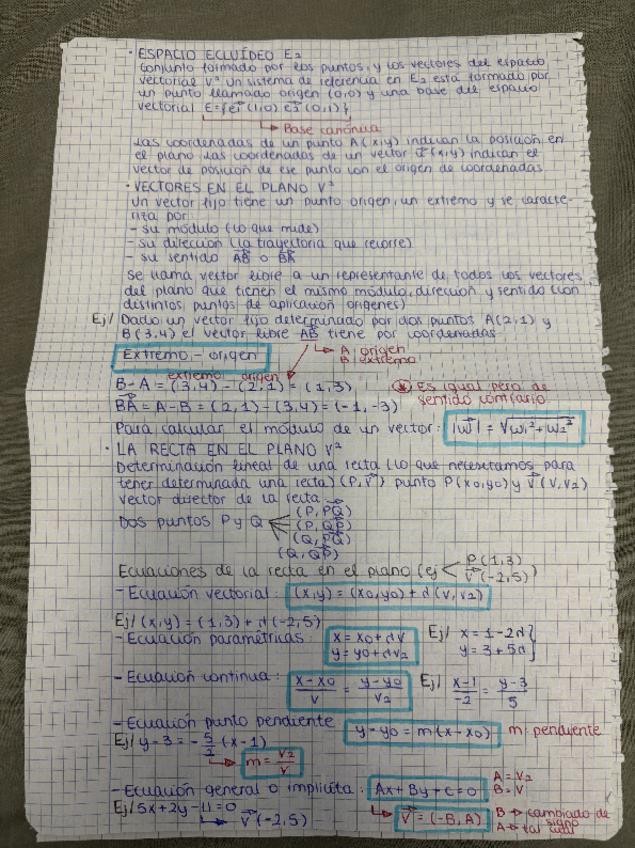 · ESPACIO ECLUÍDEO E2
Conjunto formado por los puntos, y los vectores del espacio
vectorial V² Un sistema de referencia en E2 está formado por
un punto llamado origen (0,0) y una base del espacio
vectorial E={e1(1,0) e2(0,1)}
Base canónica
Las coordenadas de un punto A(x,y) indican la posición en
el plano las coordenadas de un vector (x,y) indican el
vector de posición de ese punto con el origen de coordenadas
· VECTORES EN EL PLANO V²
Un vector fijo tiene un punto origen, un extremo y se caracte-
riza por:
- su módulo (lo que mide)
- su dirección (la trayectoria que recorre)
- su sentido AB o BA
Se llama vector libre a un representante de todos los vectores
del plano que tienen el mismo módulo, dirección y sentido (con
distintos puntos de aplicación orígenes)
Ej/ Dado un vector fijo determinado por dos puntos A(2,1) y
B(3,4) el vector libre AB tiene por coordenadas
Extremo - origen
A: origen
B: extremo
extremo origen
B-A = (3,4) - (2,1) = (1,3)
Es igual pero de
sentido contrario
BA = A-B = (2,1) - (3,4) = (-1,-3)
Para calcular el módulo de un vector: |w| = √w1²+w2²
· LA RECTA EN EL PLANO V²
Determinación lineal de una recta (lo que necesitamos para
tener determinada una recta) (P,V) punto P(x0,y0) y V(V,V2)
vector director de la recta
Dos puntos P y Q
(P, PQ)
(P, QP)
(Q, PQ)
(Q, QP)
Ecuaciones de la recta en el plano (ej P(1,3) V(-2,5))
- Ecuación vectorial: (x,y) = (x0,y0) + d(v,v2)
Ej/ (x,y) = (1,3) + d(-2,5)
- Ecuación paramétricas: x = x0 + dv
y = y0 + dv2
Ej/ x = 1-2d
y = 3+5d
- Ecuación continua: x-x0/v = y-y0/v2 Ej/ x-1/-2 = y-3/5
- Ecuación punto pendiente y-y0 = m(x-x0) m: pendiente
Ej/ y-3 = -5/2 (x-1)
m = v2/v
- Ecuación general o implícita: Ax + By + C = 0
A = V2
B = V
Ej/ 5x+2y-11=0
V(-2,5)
V = (-B, A)
B → cambiado de
signo
A → tal cual